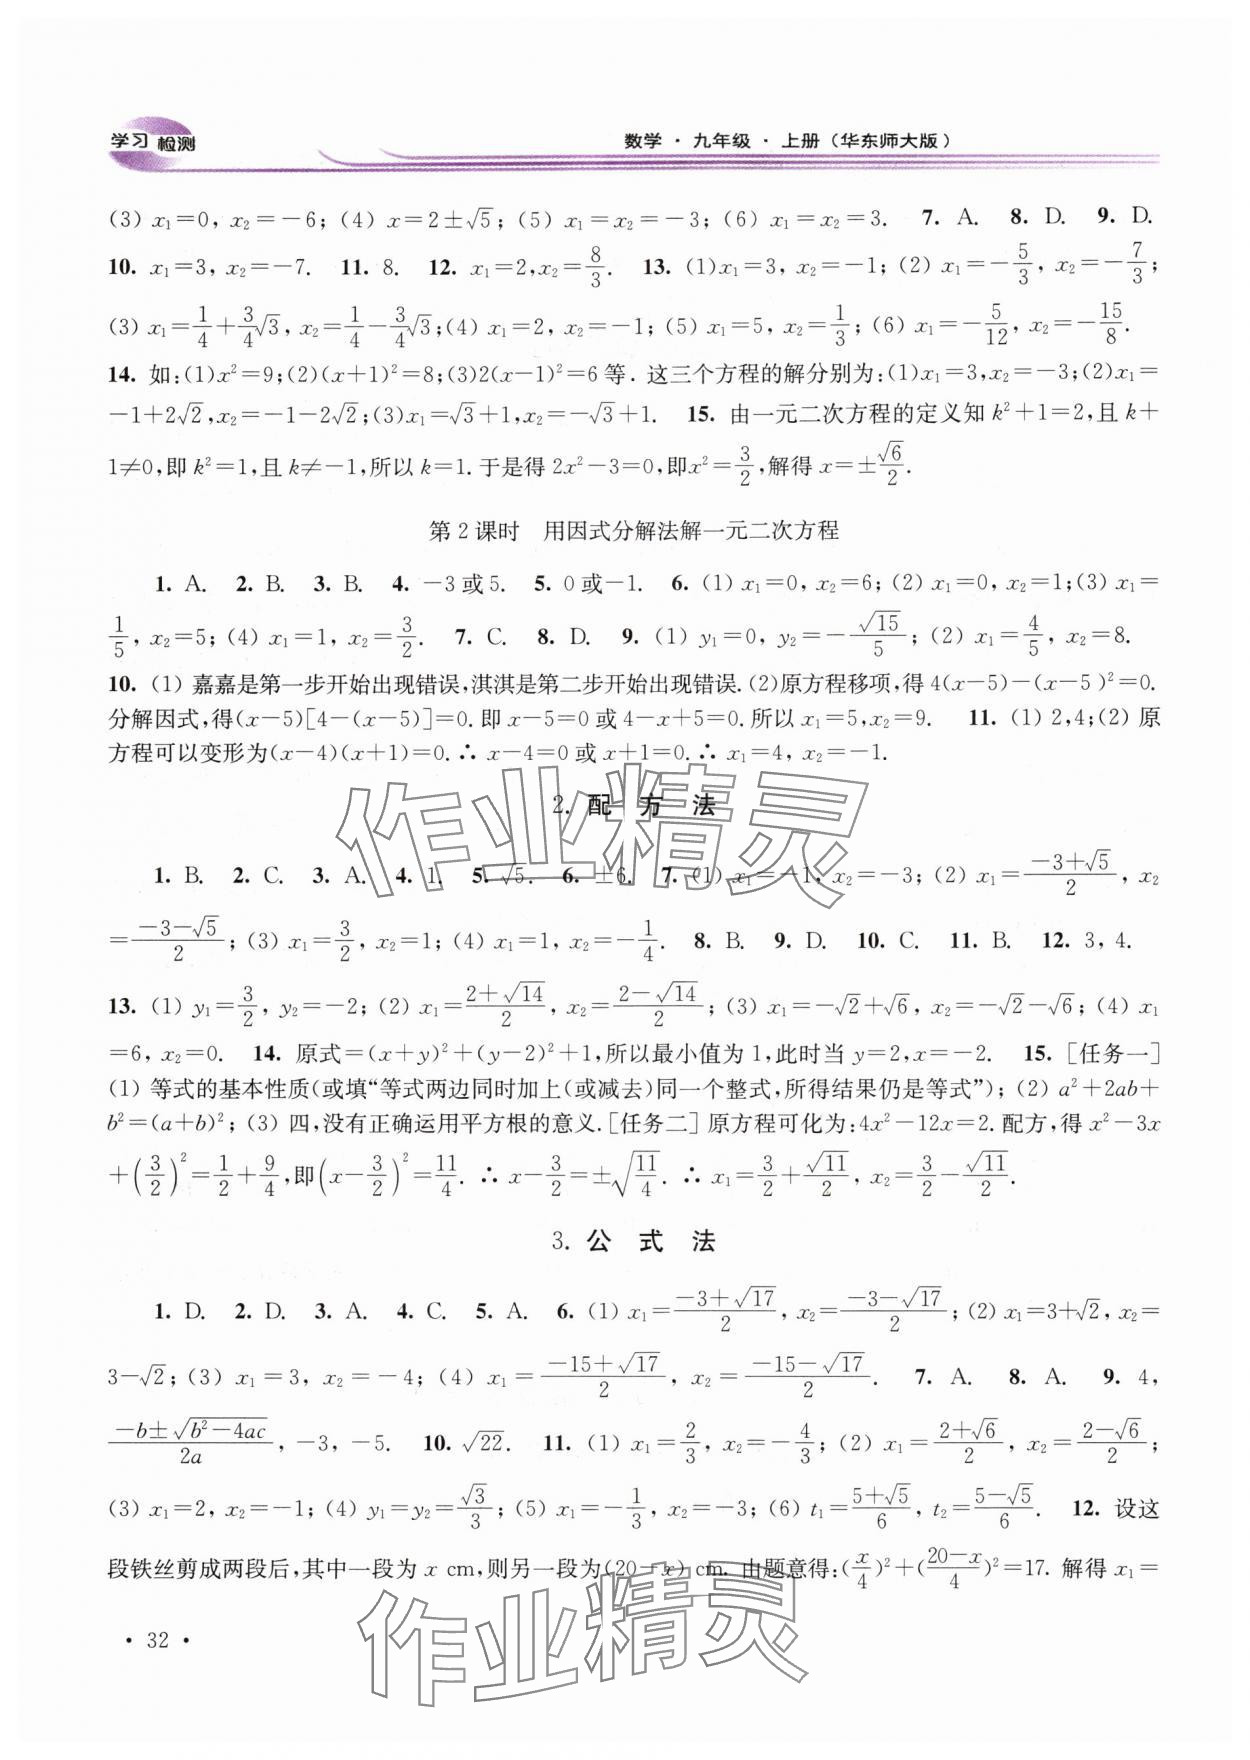 学习检测
数学·九年级·上册(华东师大版)
(3) x₁=0, x₂=-6; (4) x=2±√5; (5) x₁=x₂=-3; (6) x₁=x₂=3. 7. A. 8. D. 9. D.
10. x₁=3, x₂=-7. 11. 8. 12. x₁=2,x₂=8/3. 13. (1)x₁=3, x₂=-1; (2) x₁=-5/3, x₂=-7/3;
(3) x₁=1/4+3/4√3, x₂=1/4-3/4√3;(4) x₁=2, x₂=-1; (5) x₁=5, x₂=1/3; (6) x₁=-5/12, x₂=-15/8.
14. 如:(1)x²=9;(2)(x+1)²=8;(3)2(x-1)²=6等.这三个方程的解分别为:(1)x₁=3,x₂=-3;(2)x₁=
-1+2√2,x₂=-1-2√2;(3)x₁=√3+1,x₂=-√3+1. 15. 由一元二次方程的定义知 k²+1=2,且 k+
1≠0,即 k²=1,且 k≠-1,所以 k=1.于是得 2x²-3=0,即x²=3/2,解得 x=±√6/2.
第 2 课时 用因式分解法解一元二次方程
1. A. 2. B. 3. B. 4. -3或5. 5. 0或-1. 6. (1) x₁=0, x₂=6; (2) x₁=0, x₂=1;(3) x₁=
1/5, x₂=5; (4) x₁=1, x₂=3/2. 7. C. 8. D. 9. (1) y₁=0, y₂=-√15/5; (2) x₁=4/5, x₂=8.
10. (1) 嘉嘉是第一步开始出现错误,淇淇是第二步开始出现错误.(2)原方程移项,得 4(x-5)-(x-5 )²=0.
分解因式,得(x-5)[4-(x-5)]=0.即 x-5=0 或 4-x+5=0.所以 x₁=5,x₂=9. 11. (1) 2,4;(2) 原
方程可以变形为(x-4)(x+1)=0.∴ x-4=0 或 x+1=0.∴ x₁=4, x₂=-1.
2. 配 方 法
1. B. 2. C. 3. A. 4. 1. 5. √5. 6. ±6. 7. (1) x₁=-1, x₂=-3; (2) x₁=(-3+√5)/2, x₂
=(-3-√5)/2; (3) x₁=3/2, x₂=1; (4) x₁=1, x₂=-1/4. 8. B. 9. D. 10. C. 11. B. 12. 3, 4.
13. (1) y₁=3/2, y₂=-2; (2) x₁=(2+√14)/2, x₂=(2-√14)/2; (3) x₁=-√2+√6, x₂=-√2-√6; (4) x₁
=6, x₂=0. 14. 原式=(x+y)²+(y-2)²+1,所以最小值为 1,此时当 y=2,x=-2. 15. [任务一]
(1) 等式的基本性质(或填“等式两边同时加上(或减去)同一个整式,所得结果仍是等式”); (2) a²+2ab+
b²=(a+b)²; (3) 四,没有正确运用平方根的意义.[任务二] 原方程可化为:4x²-12x=2.配方,得 x²-3x
+(3/2)²=1/2+9/4,即(x-3/2)²=11/4. ∴ x-3/2=±√(11/4). ∴ x₁=3/2+√11/2, x₂=3/2-√11/2.
3. 公 式 法
1. D. 2. D. 3. A. 4. C. 5. A. 6. (1) x₁=(-3+√17)/2, x₂=(-3-√17)/2; (2) x₁=3+√2, x₂=
3-√2; (3) x₁=3, x₂=-4; (4) x₁=(-15+√17)/2, x₂=(-15-√17)/2. 7. A. 8. A. 9. 4,
(-b±√(b²-4ac))/2a, -3, -5. 10. √22. 11. (1) x₁=2/3, x₂=-4/3; (2) x₁=(2+√6)/2, x₂=(2-√6)/2;
(3) x₁=2, x₂=-1; (4) y₁=y₂=√3/3; (5) x₁=-1/3, x₂=-3; (6) t₁=(5+√5)/6, t₂=(5-√5)/6. 12. 设这
段铁丝剪成两段后,其中一段为 x cm,则另一段为(20-x) cm. 由题意得:(x/4)²+((20-x)/4)²=17. 解得 x₁=
· 32 ·
作业精灵
作业精灵